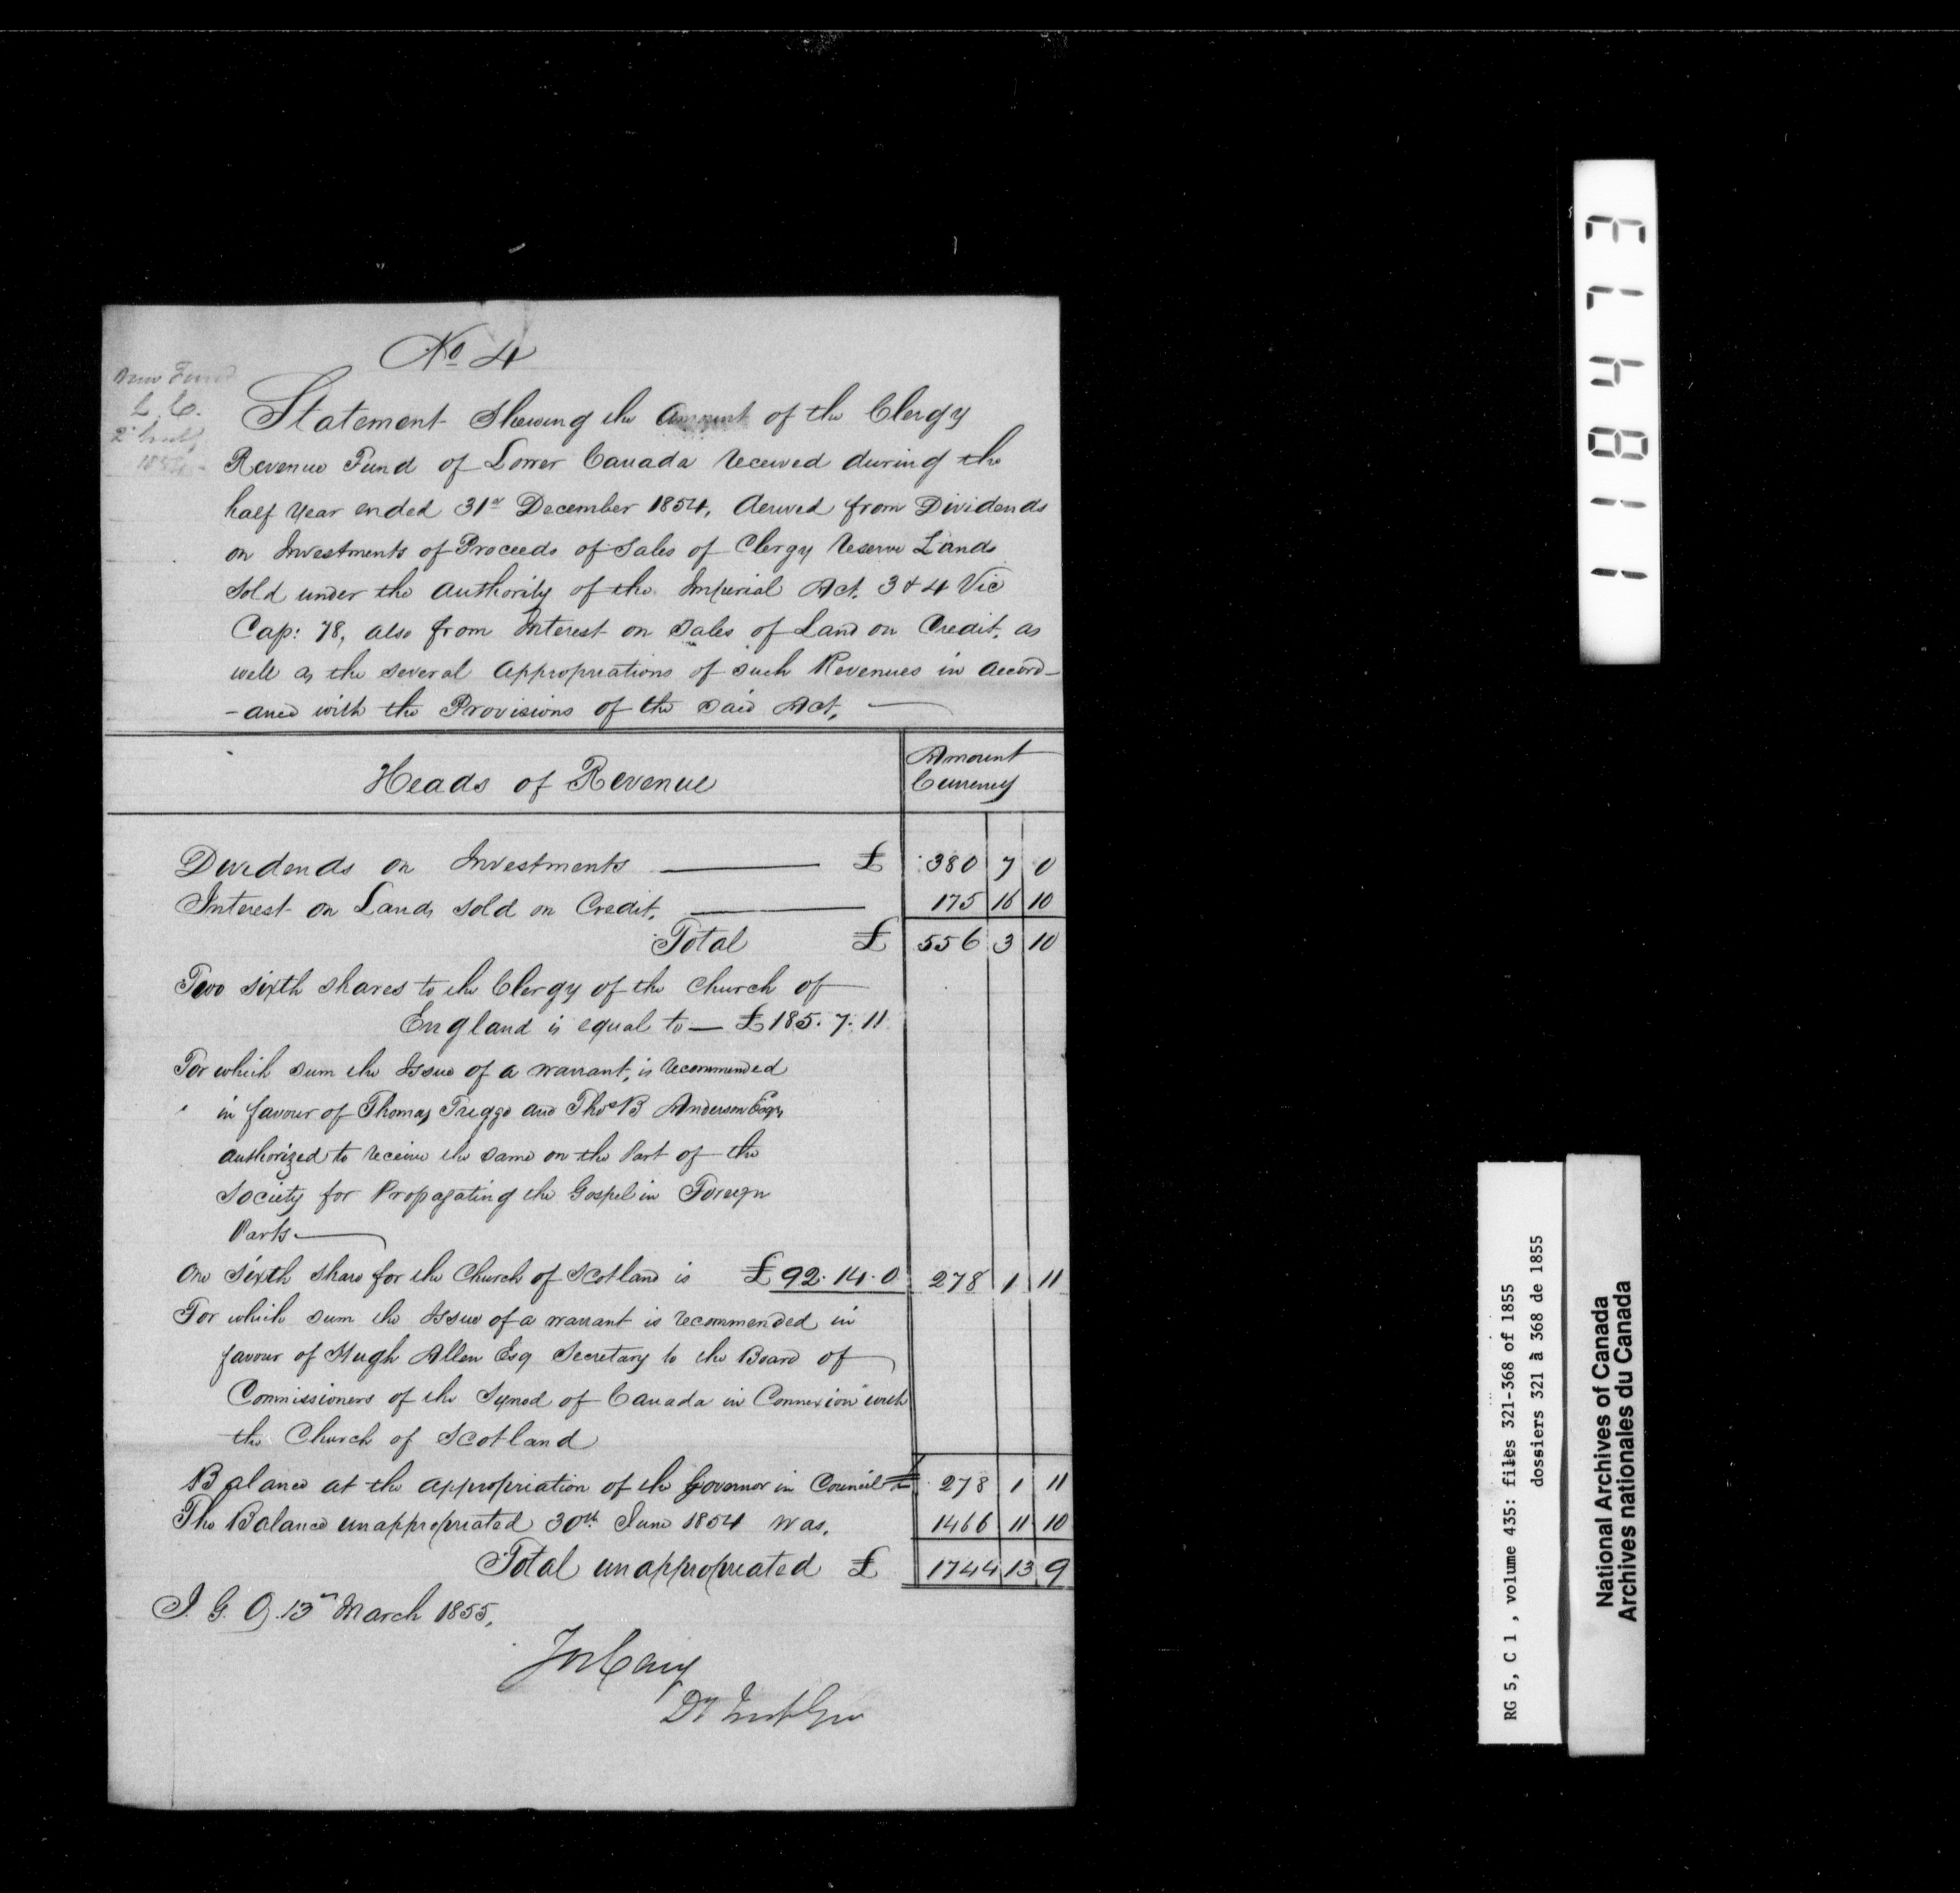 No 4
New Fund
L. C.
2d half
1854
Statement Shewing the Amount of the Clergy
Revenue Fund of Lower Canada received during the
half year ended 31st December 1854, derived from Dividends
on Investments of Proceeds of Sales of Clergy Reserve Lands
sold under the authority of the Imperial Act. 3 & 4 Vic
Cap: 78, also from Interest on Sales of Land on Credit, as
well as the several appropriations of such Revenues in accord-
-ance with the Provisions of the said Act,
Heads of Revenue
Amount
Currency
Dividends on Investments £ 380 7 0
Interest on Lands sold on Credit. 175 16 10
Total £ 556 3 10
Two sixth shares to the Clergy of the Church of
England is equal to — £185. 7. 11
For which sum the Issue of a warrant, is recommended
in favour of Thomas Trigge and Thos B Anderson Esqrs
authorized to receive the same on the Part of the
Society for Propagating the Gospel in Foreign
Parts
One sixth share for the Church of Scotland is £92. 14. 0 278 1 11
For which sum the Issue of a warrant is recommended in
favour of Hugh Allen Esq Secretary to the Board of
Commissioners of the Synod of Canada in Connexion with
the Church of Scotland
Balance at the appropriation of the Governor in Council £ 278 1 11
The Balance unappropriated 30th June 1854 was, 1466 11 10
Total unappropriated £ 1744 13 9
I. G. O. 13th March 1855,
Jos Cary
Dy Inst Gen
118473
RG 5, C 1 , volume 435: files 321-368 of 1855
dossiers 321 à 368 de 1855
National Archives of Canada
Archives nationales du Canada